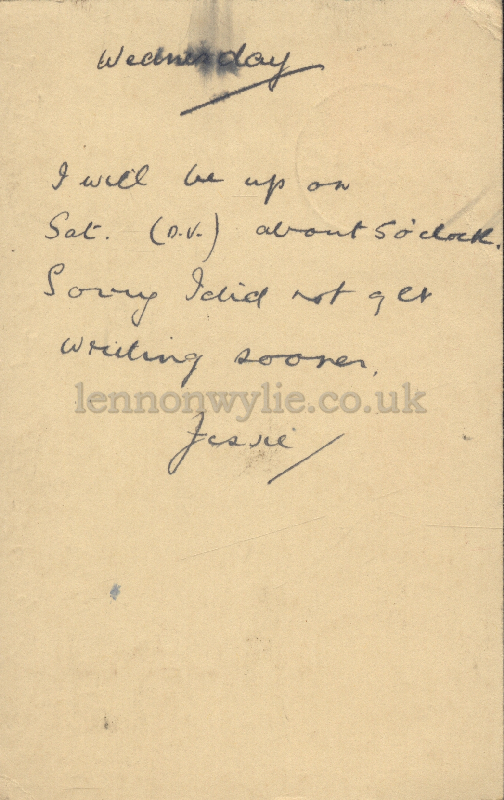 Wednesday
I will be up on
Sat. (D.V.) about 5 o'clock.
Sorry I did not get
writing sooner.
lennonwylie.co.uk
Jessie